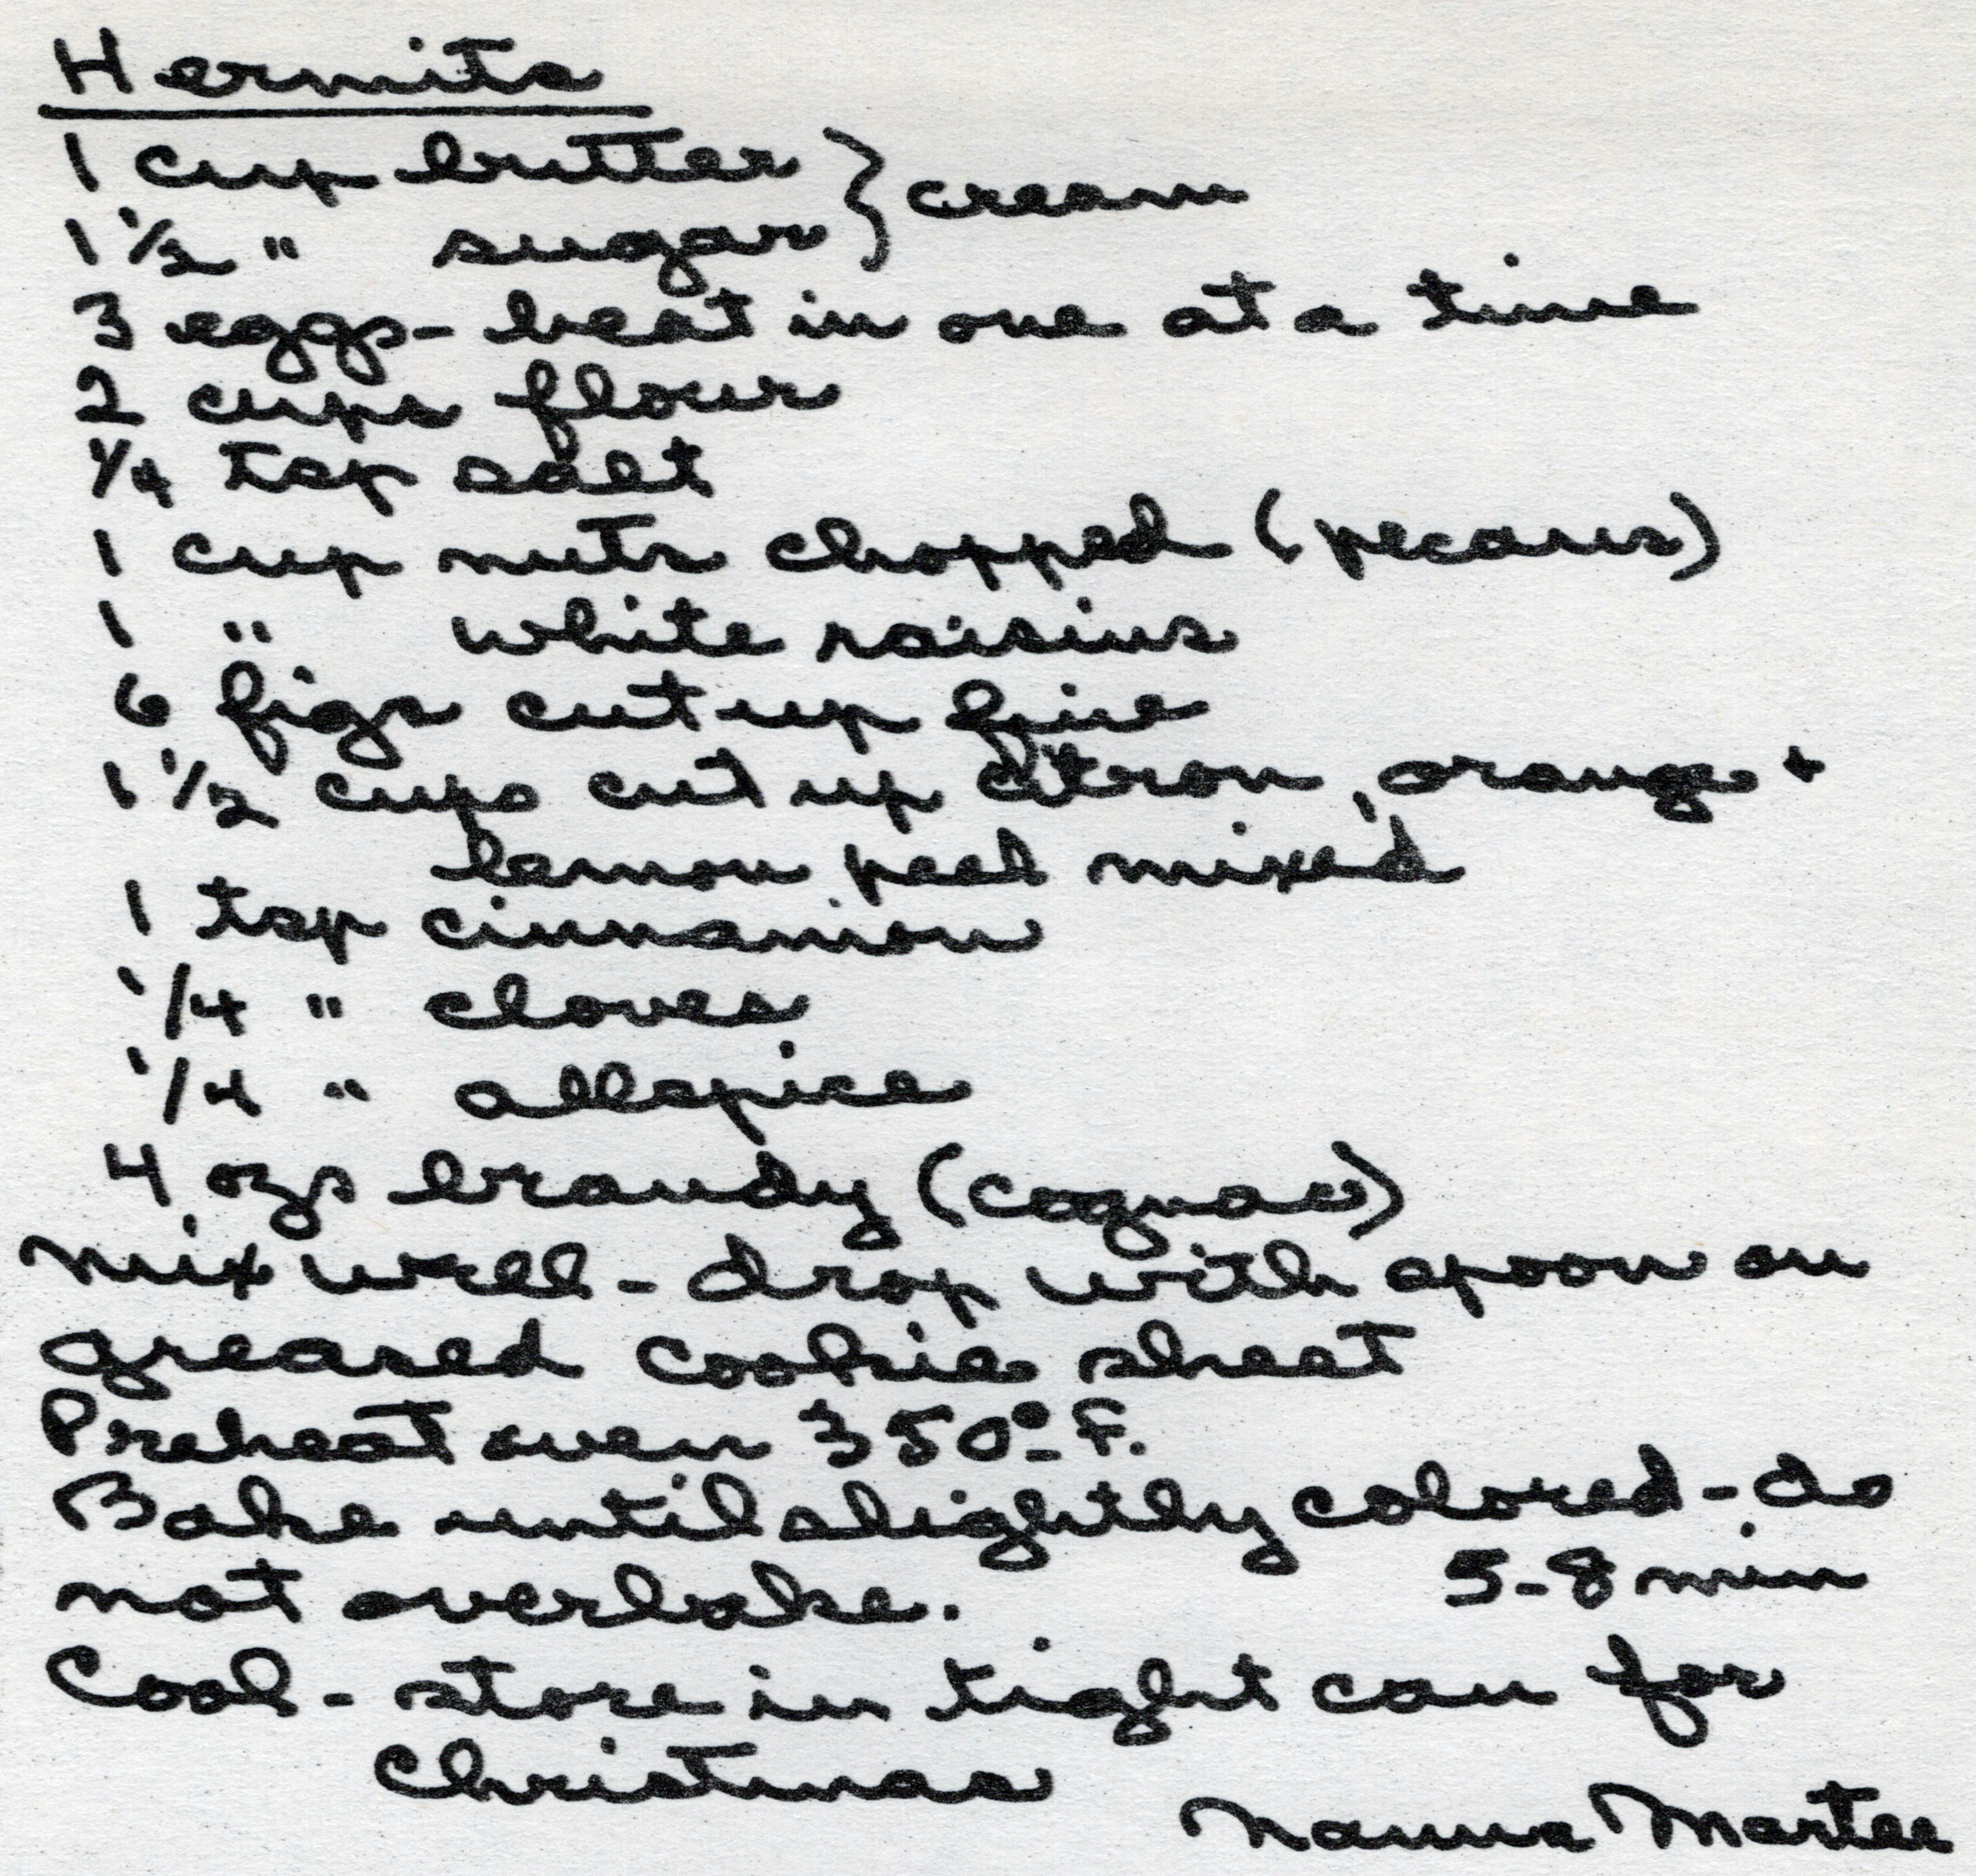 Hermits
1 cup butter } cream
1 1/2 " sugar
3 eggs - beat in one at a time
2 cups flour
1/4 tsp salt
1 cup nuts chopped (pecans)
1 " white raisins
6 figs cut up fine
1 1/2 cups cut up citron, orange +
lemon peel mixed
1 tsp cinnamon
1/4 " cloves
1/4 " allspice
4 ozs brandy (cognac)
Mix well - drop with spoon on
greased cookie sheet
Preheat oven 350° F.
Bake until slightly colored - do
not overbake. 5-8 min
Cool - store in tight can for
Christmas
Nanna